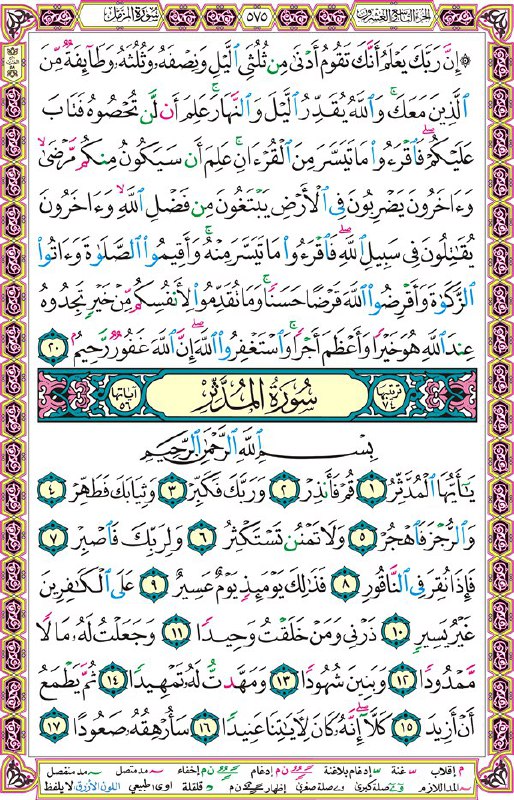 سورة المزمل ٥٧٥ الجزء التاسع والعشرون
۞ إِنَّ رَبَّكَ يَعْلَمُ أَنَّكَ تَقُومُ أَدْنَىٰ مِن ثُلُثَىِ ٱلَّيْلِ وَنِصْفَهُۥ وَثُلُثَهُۥ وَطَآئِفَةٌ مِّنَ
ٱلَّذِينَ مَعَكَ ۚ وَٱللَّهُ يُقَدِّرُ ٱلَّيْلَ وَٱلنَّهَارَ ۚ عَلِمَ أَن لَّن تُحْصُوهُ فَتَابَ
عَلَيْكُمْ ۖ فَٱقْرَءُوا۟ مَا تَيَسَّرَ مِنَ ٱلْقُرْءَانِ ۚ عَلِمَ أَن سَيَكُونُ مِنكُم مَّرْضَىٰ ۙ
وَءَاخَرُونَ يَضْرِبُونَ فِى ٱلْأَرْضِ يَبْتَغُونَ مِن فَضْلِ ٱللَّهِ ۙ وَءَاخَرُونَ
يُقَٰتِلُونَ فِى سَبِيلِ ٱللَّهِ ۖ فَٱقْرَءُوا۟ مَا تَيَسَّرَ مِنْهُ ۚ وَأَقِيمُوا۟ ٱلصَّلَوٰةَ وَءَاتُوا۟
ٱلزَّكَوٰةَ وَأَقْرِضُوا۟ ٱللَّهَ قَرْضًا حَسَنًا ۚ وَمَا تُقَدِّمُوا۟ لِأَنفُسِكُم مِّنْ خَيْرٍ تَجِدُوهُ
عِندَ ٱللَّهِ هُوَ خَيْرًا وَأَعْظَمَ أَجْرًا ۚ وَٱسْتَغْفِرُوا۟ ٱللَّهَ ۖ إِنَّ ٱللَّهَ غَفُورٌ رَّحِيمٌۢ ٢٠
ترتيبها ٧٤ سُورَةُ المُدَّثِّر آياتها ٥٦
بِسْمِ ٱللَّهِ ٱلرَّحْمَٰنِ ٱلرَّحِيمِ
يَٰٓأَيُّهَا ٱلْمُدَّثِّرُ ١ قُمْ فَأَنذِرْ ٢ وَرَبَّكَ فَكَبِّرْ ٣ وَثِيَابَكَ فَطَهِّرْ ٤
وَٱلرُّجْزَ فَٱهْجُرْ ٥ وَلَا تَمْنُن تَسْتَكْثِرُ ٦ وَلِرَبِّكَ فَٱصْبِرْ ٧
فَإِذَا نُقِرَ فِى ٱلنَّاقُورِ ٨ فَذَٰلِكَ يَوْمَئِذٍ يَوْمٌ عَسِيرٌ ٩ عَلَى ٱلْكَٰفِرِينَ
غَيْرُ يَسِيرٍ ١٠ ذَرْنِى وَمَنْ خَلَقْتُ وَحِيدًا ١١ وَجَعَلْتُ لَهُۥ مَالًا
مَّمْدُودًا ١٢ وَبَنِينَ شُهُودًا ١٣ وَمَهَّدتُّ لَهُۥ تَمْهِيدًا ١٤ ثُمَّ يَطْمَعُ
أَنْ أَزِيدَ ١٥ كَلَّآ ۖ إِنَّهُۥ كَانَ لِـَٔايَٰتِنَا عَنِيدًا ١٦ سَأُرْهِقُهُۥ صَعُودًا ١٧
م إقلاب غنة إدغام بلاغنة ن م إدغام ن م إخفاء مد متصل مد منفصل
المد اللازم صلة كبرى صلة صغرى إظهار ن م قلقلة اوى طبيعي اللون الأزرق لا يلفظ